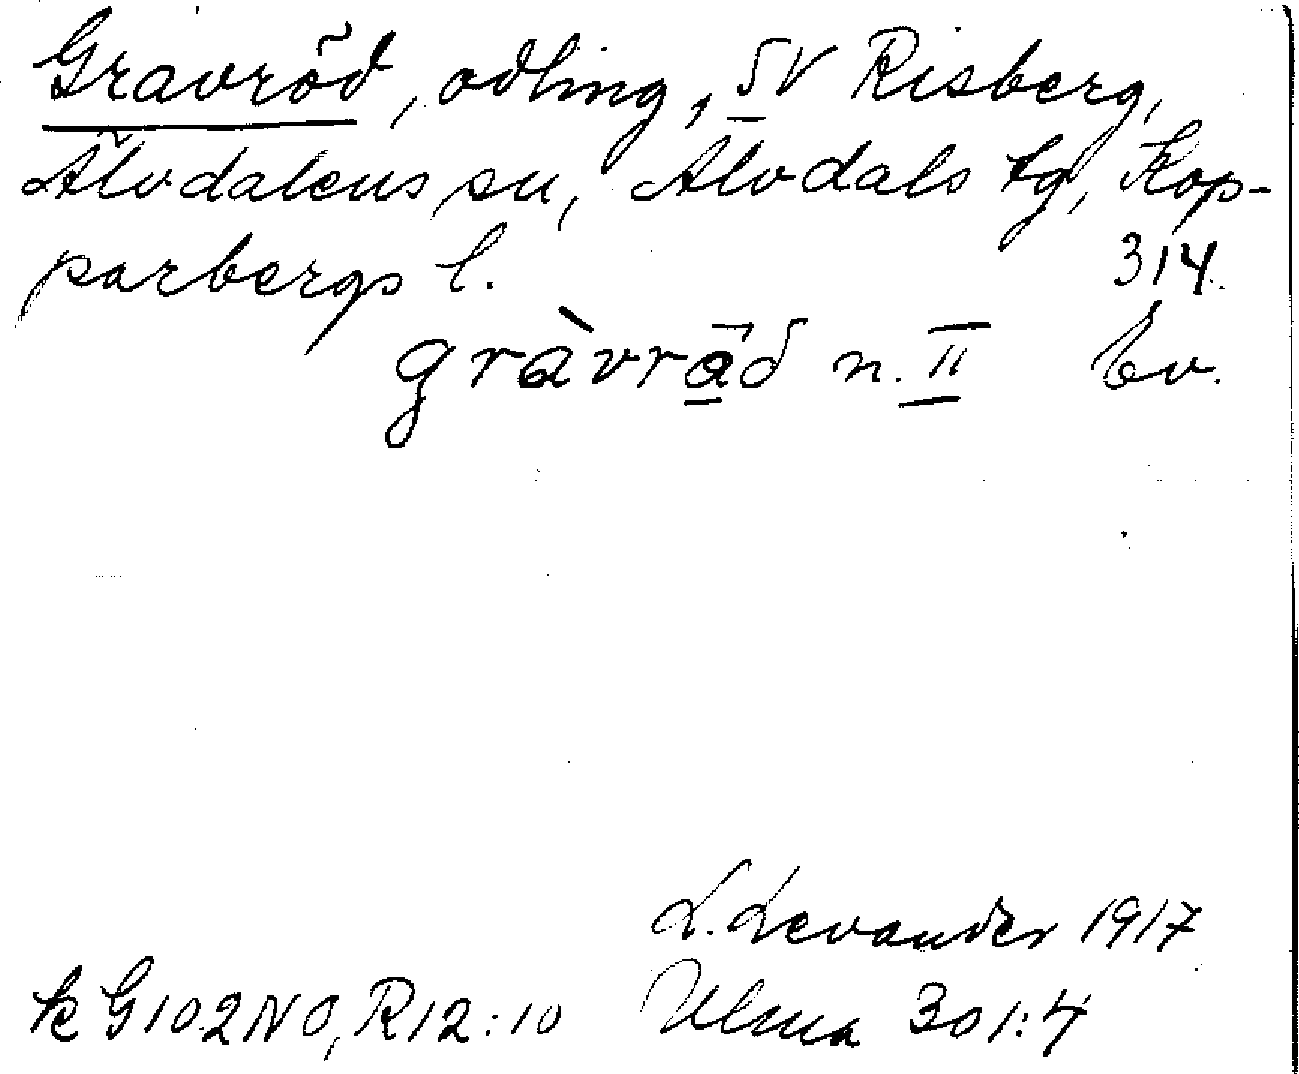 Gravröd, odling, SV Risberg,
Älvdalens sn, Älvdals tg, Kop-
parbergs l. 314.
gràvrād n. II bv.
L. Levander 1917
k G102NO, R12:10 Ulma 301:4